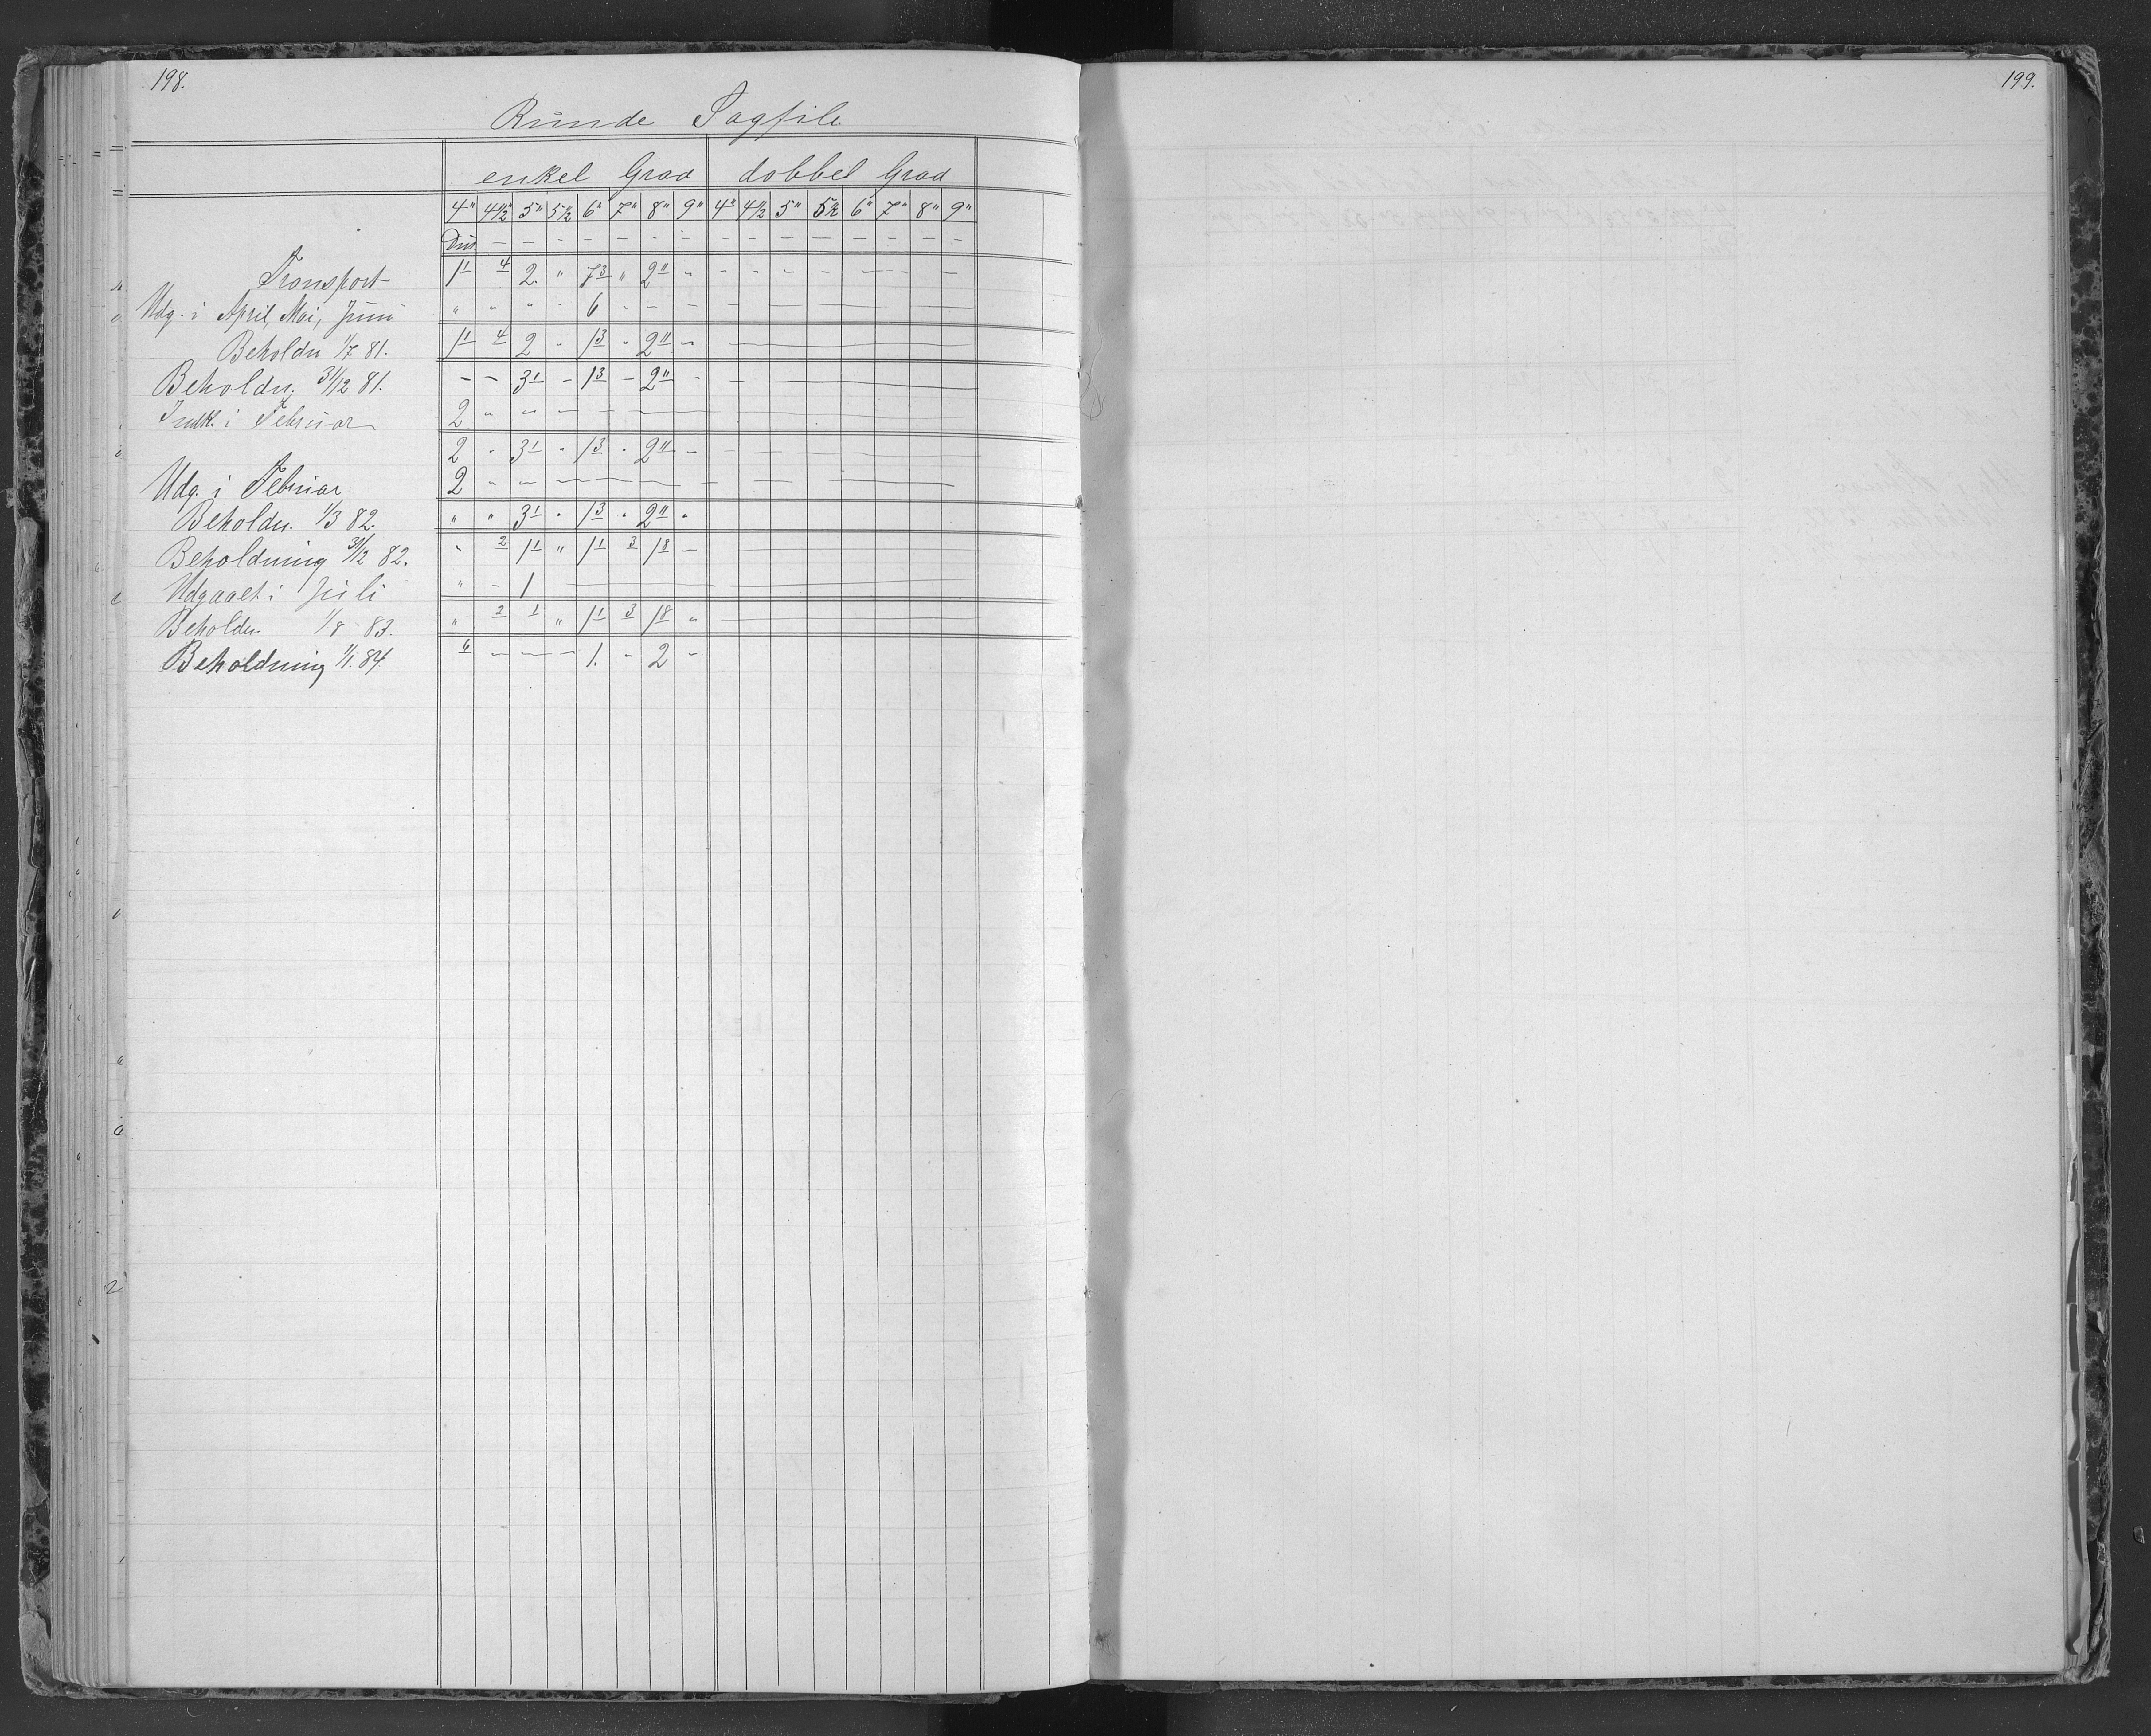 198.
Runde Sagfile
enkel Grad dobbel Grad
4" 4 1/2" 5" 5 1/2 6" 7" 8" 9" 4" 4 1/2 5" 5 1/2 6" 7" 8" 9"
Dus. — — — — — — — — — — — — — — —
Transport 1 1 4 2. " 7 3 " 2 11 " - - - - — - —
Udg. i April, Mai, Juni " " " - 6 - - — — — — — — — — —
Beholdn 1/7 81. 1 1 4 2 - 1 3 " 2 11 " —
Beholdn. 31/12 81. - - 3 1 - 1 3 - 2 11 - —
Indk. i Februar 2 " " — - —
2 - 3 1 " 1 3 " 2 11 - — — —
Udg. i Februar 2 - - — — — — — — —
Beholdn. 1/3 82. " " 3 1 " 1 3 " 2 11 "
Beholdning 31/12 82. " 2 1 1 " 1 1 3 1 8 — —
Udgaaet i Juli " - 1 —
Beholdn. 1/8 83. " 2 1 " 1 1 3 1 8 " —
Beholdning 1/1. 84 6 — — — 1. - 2 -
199.